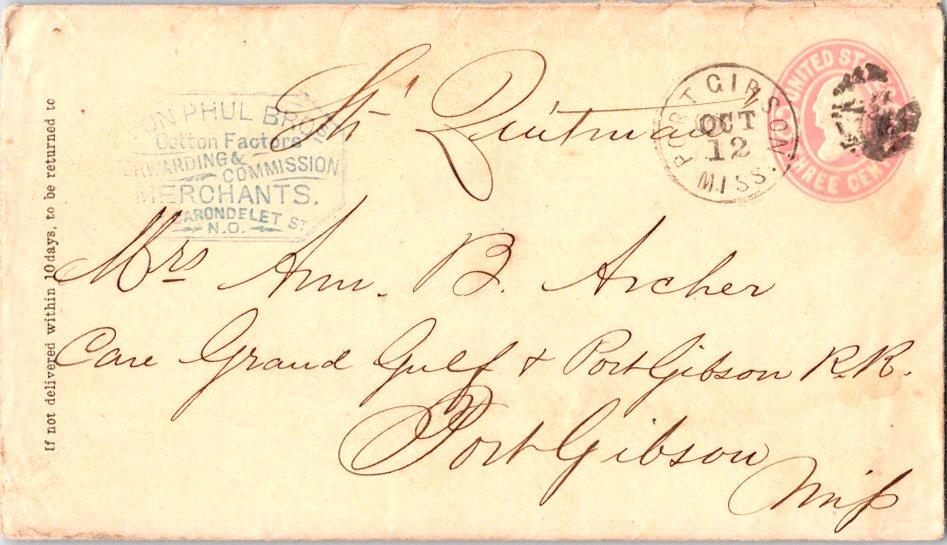 Str Quitman
ON PHUL BROS.
Cotton Factors
RWARDING & COMMISSION
MERCHANTS.
ARONDELET ST.
N.O.
PORT GIBSON
OCT
12
MISS.
UNITED STA
THREE CENT
If not delivered within 10 days, to be returned to
Mrs Ann. B. Archer
Care Grand Gulf & Port Gibson R.R.
Port Gibson
Miſs